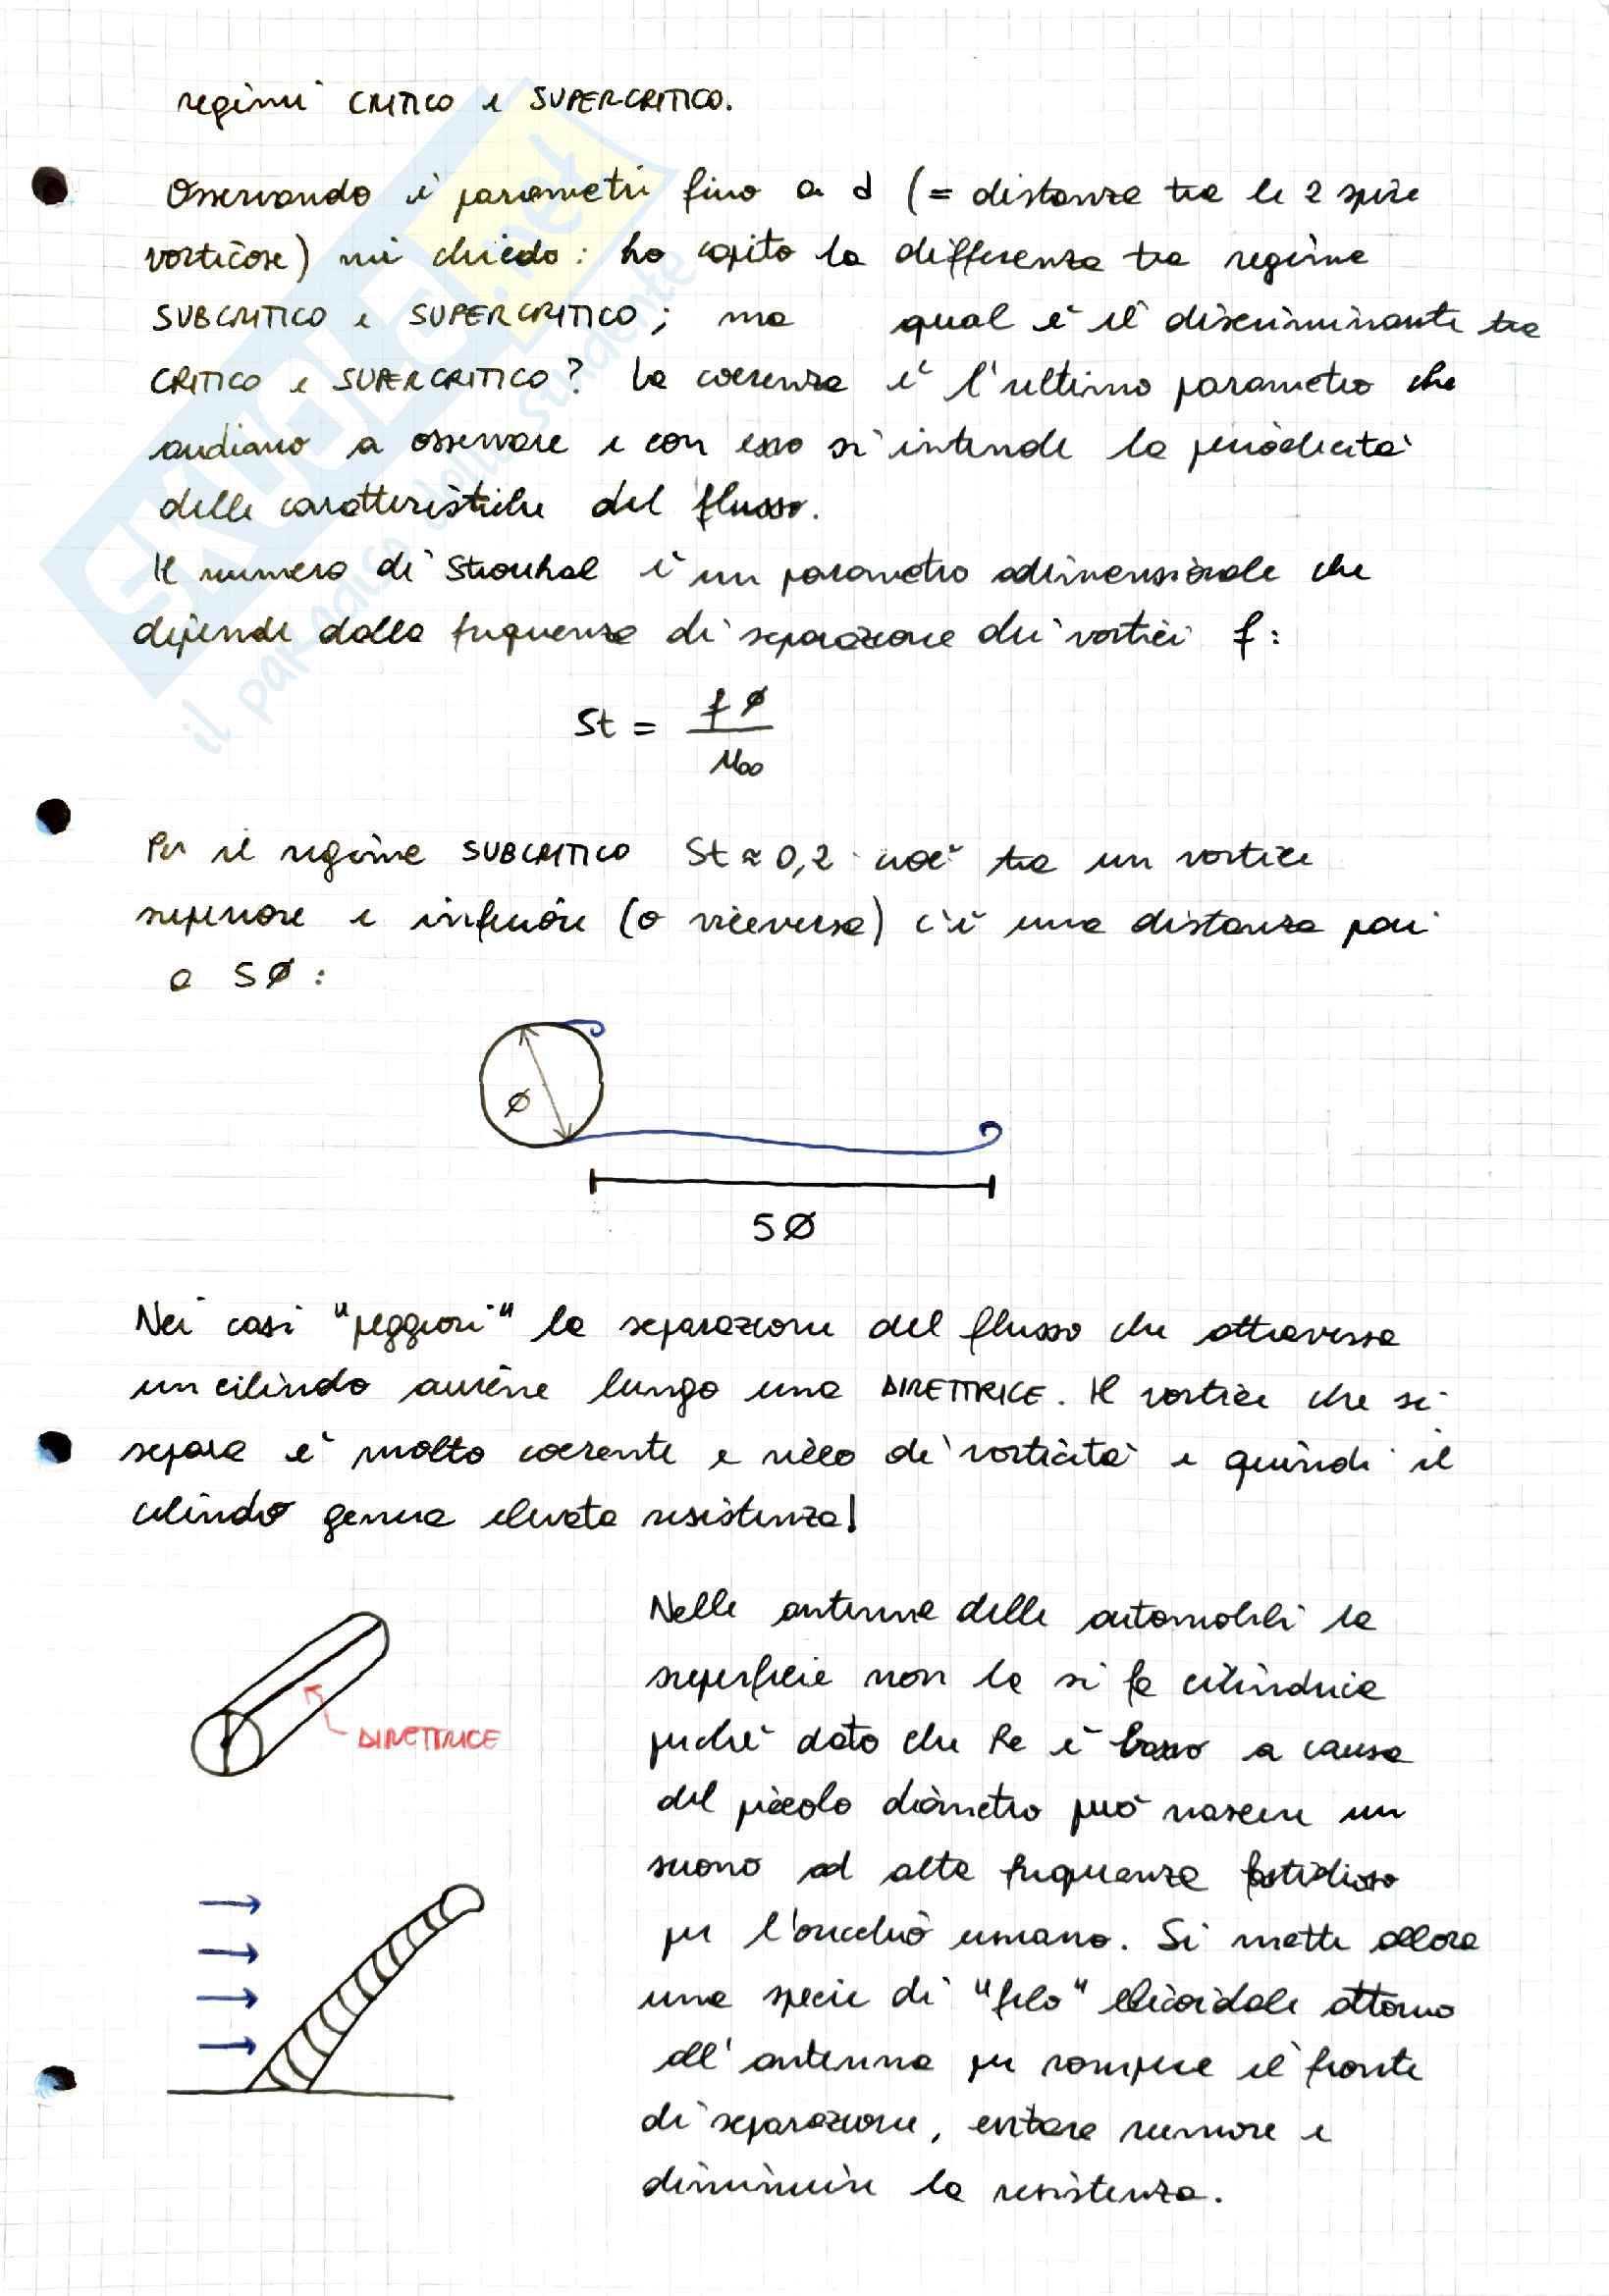 regimi CRITICO e SUPERCRITICO.
Osservando i parametri fino a d (= distanza tra le 2 spire
vorticose) mi chiedo: ho capito la differenza tra regime
SUBCRITICO e SUPERCRITICO; ma qual è il discriminante tra
CRITICO e SUPERCRITICO? La coerenza è l'ultimo parametro che
andiamo a osservare e con esso si intende la periodicità
delle caratteristiche del flusso.
Il numero di Strouhal è un parametro adimensionale che
dipende dalla frequenza di separazione dei vortici f:
St = f Ø / u∞
Per il regime SUBCRITICO St ≈ 0,2 cioè tra un vortice
superiore e inferiore (o viceversa) c'è una distanza pari
a 5Ø:
Ø
5Ø
Nei casi "peggiori" la separazione del flusso che attraversa
un cilindro avviene lungo una DIRETTRICE. Il vortice che si
separa è molto coerente e ricco di vorticità e quindi il
cilindro genera elevata resistenza!
DIRETTRICE
Nelle antenne delle automobili la
superficie non la si fa cilindrica
perchè dato che Re è basso a causa
del piccolo diametro può nascere un
suono ad alta frequenza fastidioso
per l'orecchio umano. Si mette allora
una specie di "filo" elicoidale attorno
all'antenna per rompere il fronte
di separazione, evitare rumore e
diminuire la resistenza.
SKUOLA.net
il paradiso dello studente